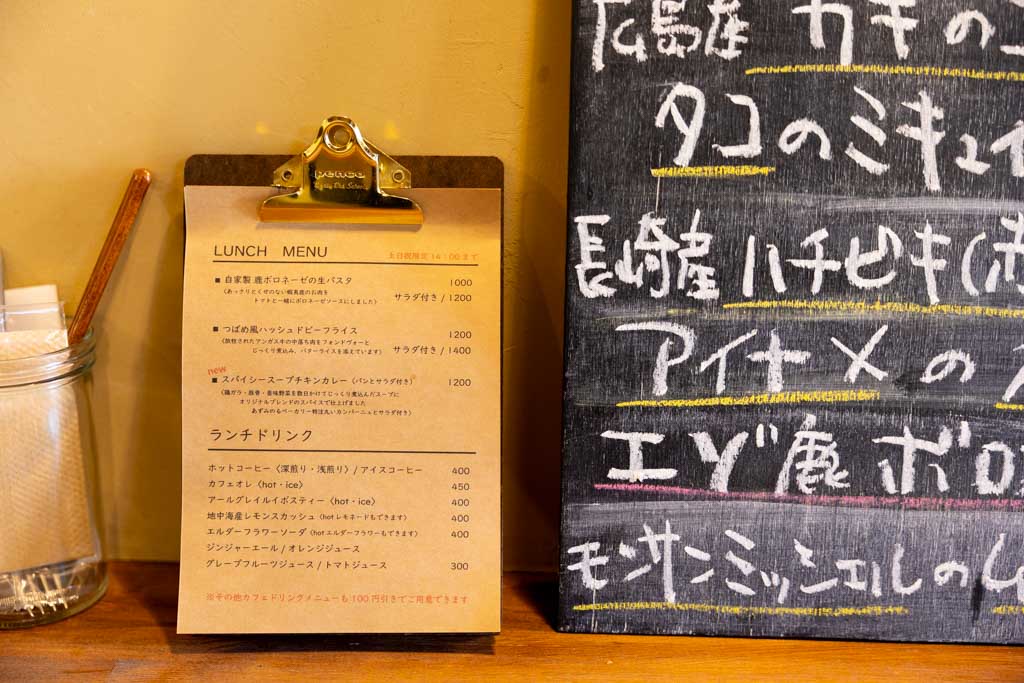 pence
LUNCH MENU 土日祝限定 14:00まで
■ 自家製 鹿ボロネーゼの生パスタ 1000
(あっさりとくせのない蝦夷鹿のお肉を
トマトと一緒にボロネーゼソースにしました) サラダ付き / 1200
■ つばめ風ハッシュドビーフライス 1200
(放牧されたアンガス牛の中落ち肉をフォンドヴォーと
じっくり煮込み、バターライスを添えています) サラダ付き / 1400
new
■ スパイシースープチキンカレー (パンとサラダ付き) 1200
(鶏ガラ・豚骨・香味野菜を数日かけてじっくり煮込んだスープに
オリジナルブレンドのスパイスで仕上げました
あずみのるベーカリー特注丸いカンパーニュとサラダ付き)
ランチドリンク
ホットコーヒー〈深煎り・浅煎り〉/ アイスコーヒー 400
カフェオレ〈hot・ice〉 450
アールグレイルイボスティー〈hot・ice〉 400
地中海産レモンスカッシュ (hot レモネードもできます) 400
エルダーフラワーソーダ (hot エルダーフラワーもできます) 400
ジンジャーエール / オレンジジュース
グレープフルーツジュース / トマトジュース 300
※その他カフェドリンクメニューも 100 円引きでご用意できます
広島産 カキの
タコのミキュイ
長崎産 ハチビキ(赤
アイナメの
エゾ鹿 ボロ
モンサンミッシェルのム